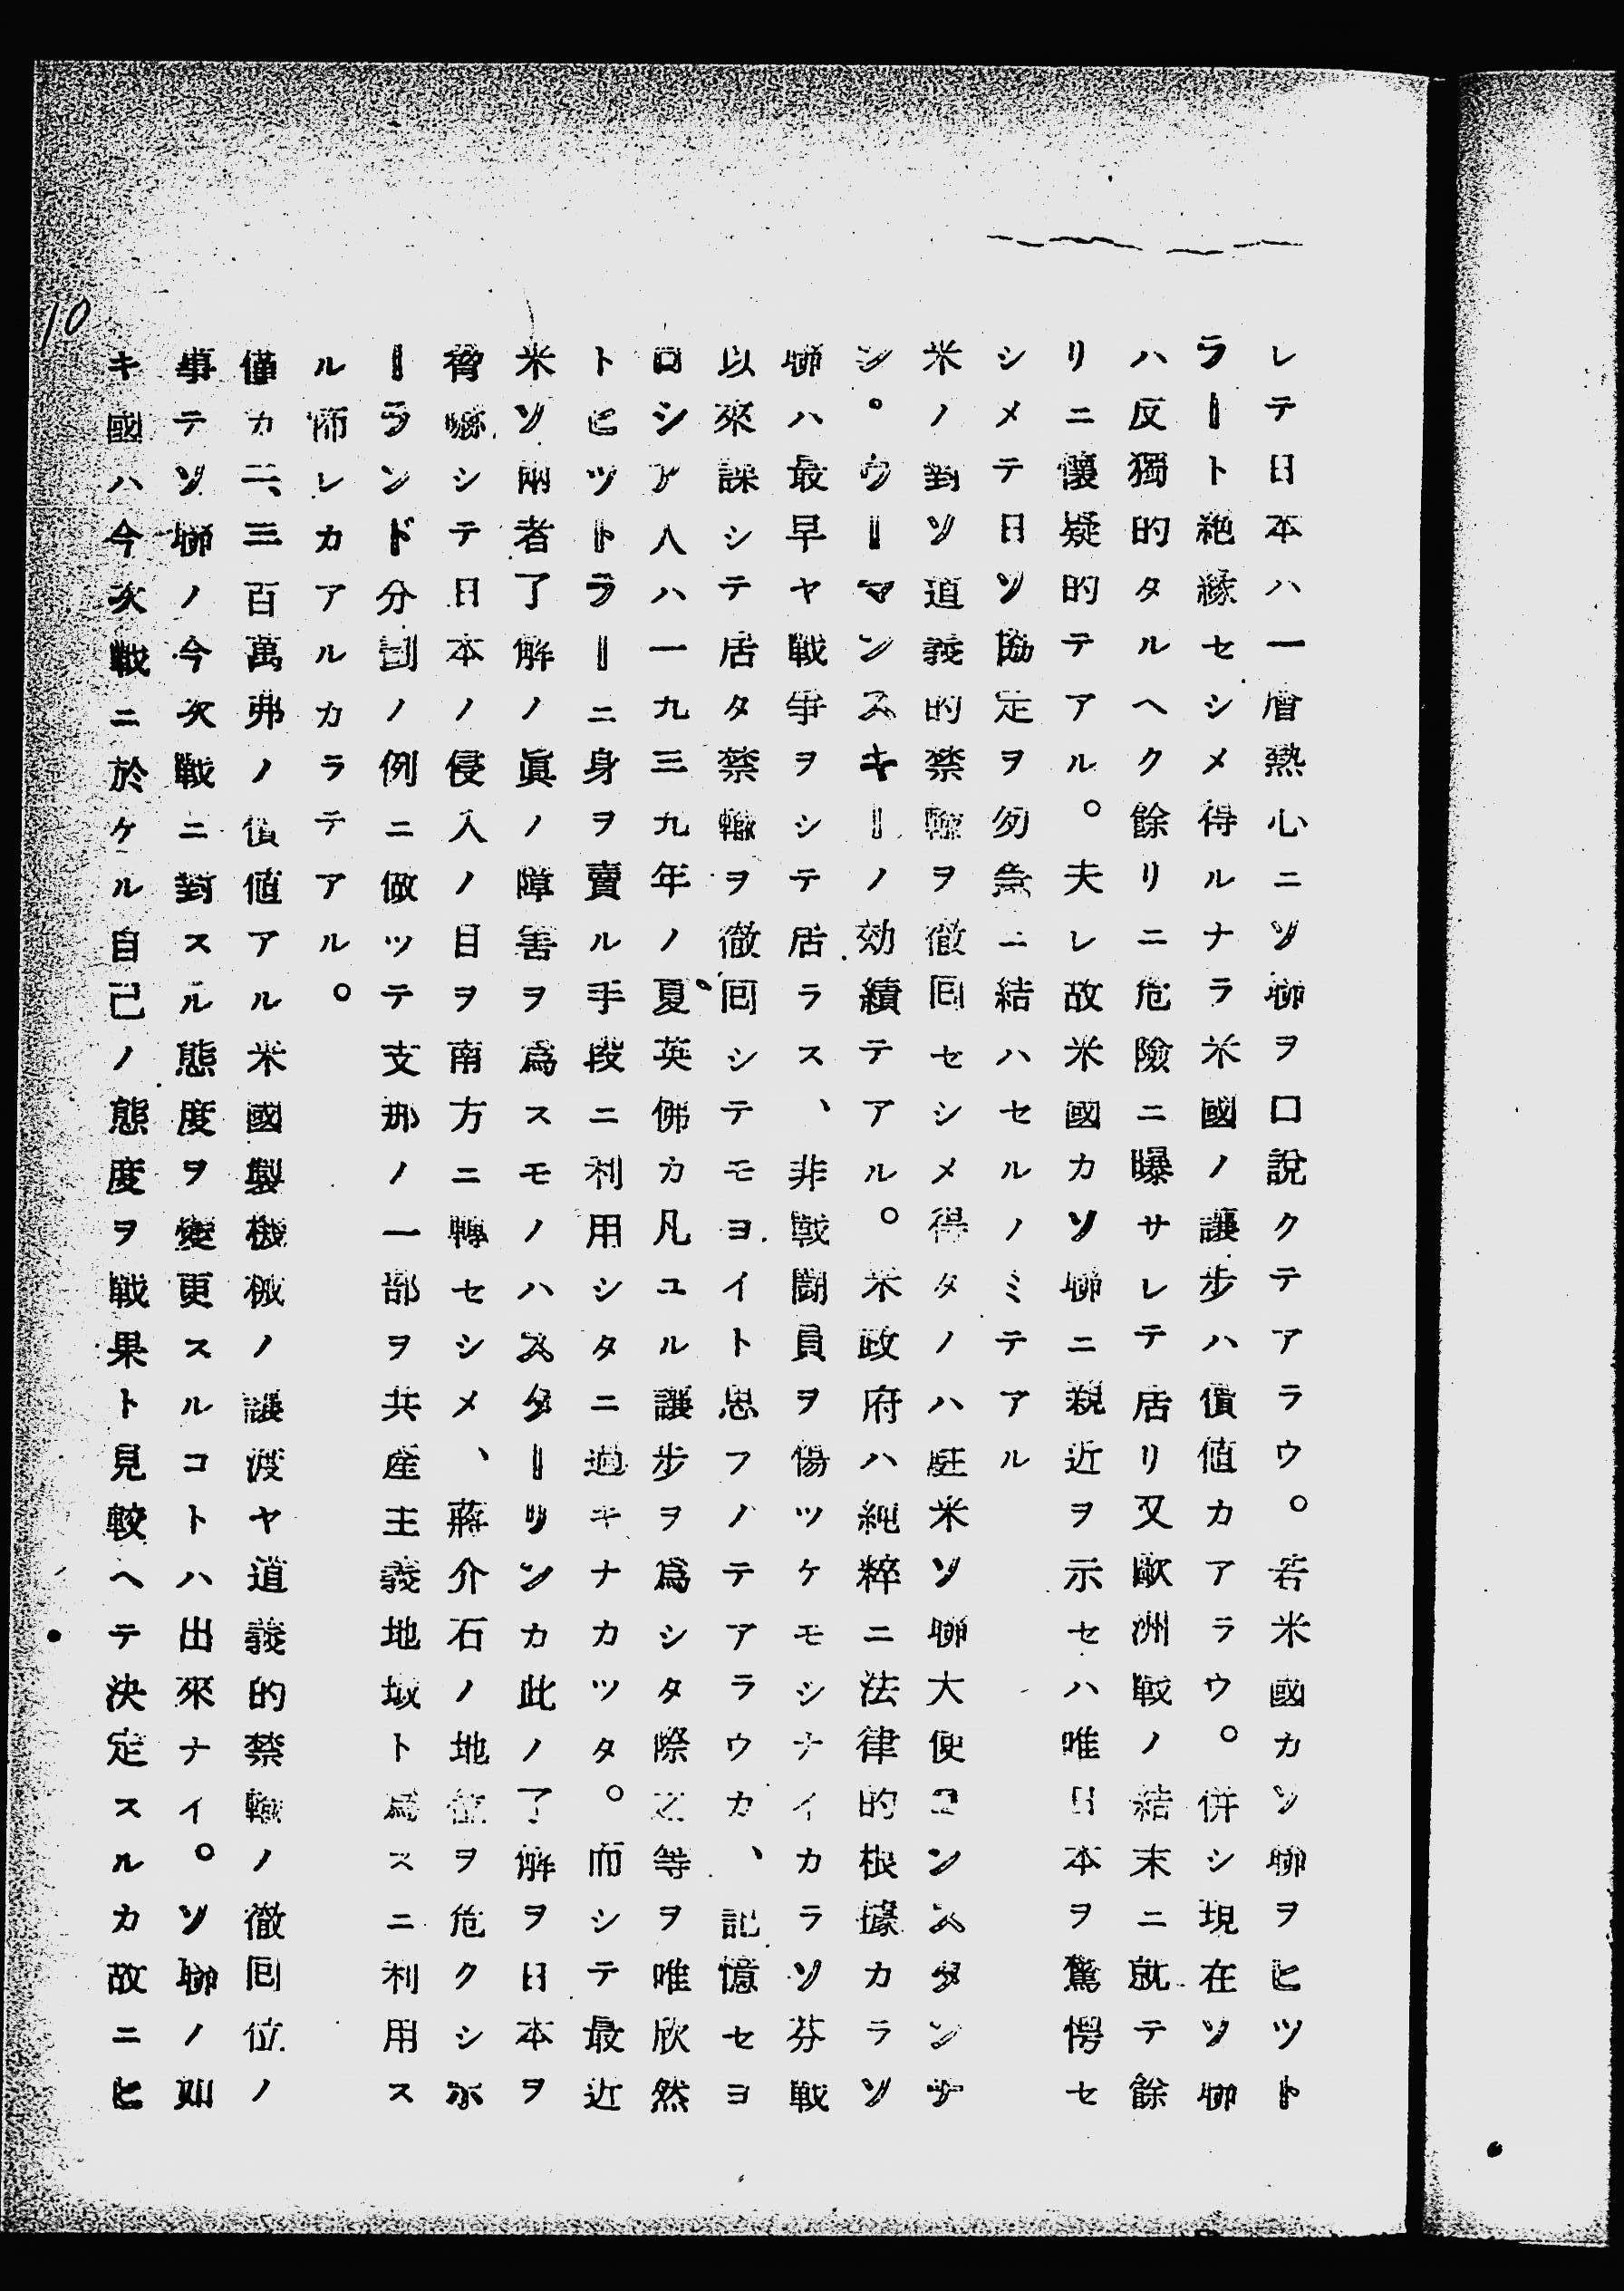 レテ日本ハ一層熱心ニソ聯ヲ口說クテアラウ。若米國カソ聯ヲヒツト
ラート絶緣セシメ得ルナラ米國ノ讓步ハ價値カアラウ。併シ現在ソ聯
ハ反獨的タルヘク餘リニ危險ニ曝サレテ居リ又歐洲戰ノ結末ニ就テ餘
リニ懷疑的テアル。夫レ故米國カソ聯ニ親近ヲ示セハ唯日本ヲ驚愕セ
シメテ日ソ協定ヲ匆急ニ結ハセルノミテアル
米ノ對ソ道義的禁輸ヲ徹囘セシメ得タノハ駐米ソ聯大使コンスタンチ
ン。ウーマンスキーノ効績テアル。米政府ハ純粹ニ法律的根據カラソ
聯ハ最早ヤ戰爭ヲシテ居ラス、非戰鬪員ヲ傷ツケモシナイカラソ芬戰
以來課シテ居タ禁輸ヲ徹囘シテモヨイト思フノテアラウカ、記憶セヨ
ロシア人ハ一九三九年ノ夏、英佛カ凡ユル讓步ヲ爲シタ際之等ヲ唯欣然
トヒツトラーニ身ヲ賣ル手段ニ利用シタニ過キナカツタ。而シテ最近
米ソ兩者了解ノ眞ノ障害ヲ爲スモノハスターリンカ此ノ了解ヲ日本ヲ
脅嚇シテ日本ノ侵入ノ目ヲ南方ニ轉セシメ、蔣介石ノ地位ヲ危クシポ
ーランド分割ノ例ニ倣ツテ支那ノ一部ヲ共產主義地域ト爲スニ利用ス
ル怖レカアルカラテアル。
僅カ二、三百萬弗ノ價値アル米國製機械ノ讓渡ヤ道義的禁輸ノ徹囘位ノ
事テソ聯ノ今次戰ニ對スル態度ヲ變更スルコトハ出來ナイ。ソ聯ノ如
キ國ハ今次戰ニ於ケル自己ノ態度ヲ戰果ト見較ヘテ決定スルカ故ニヒ
10